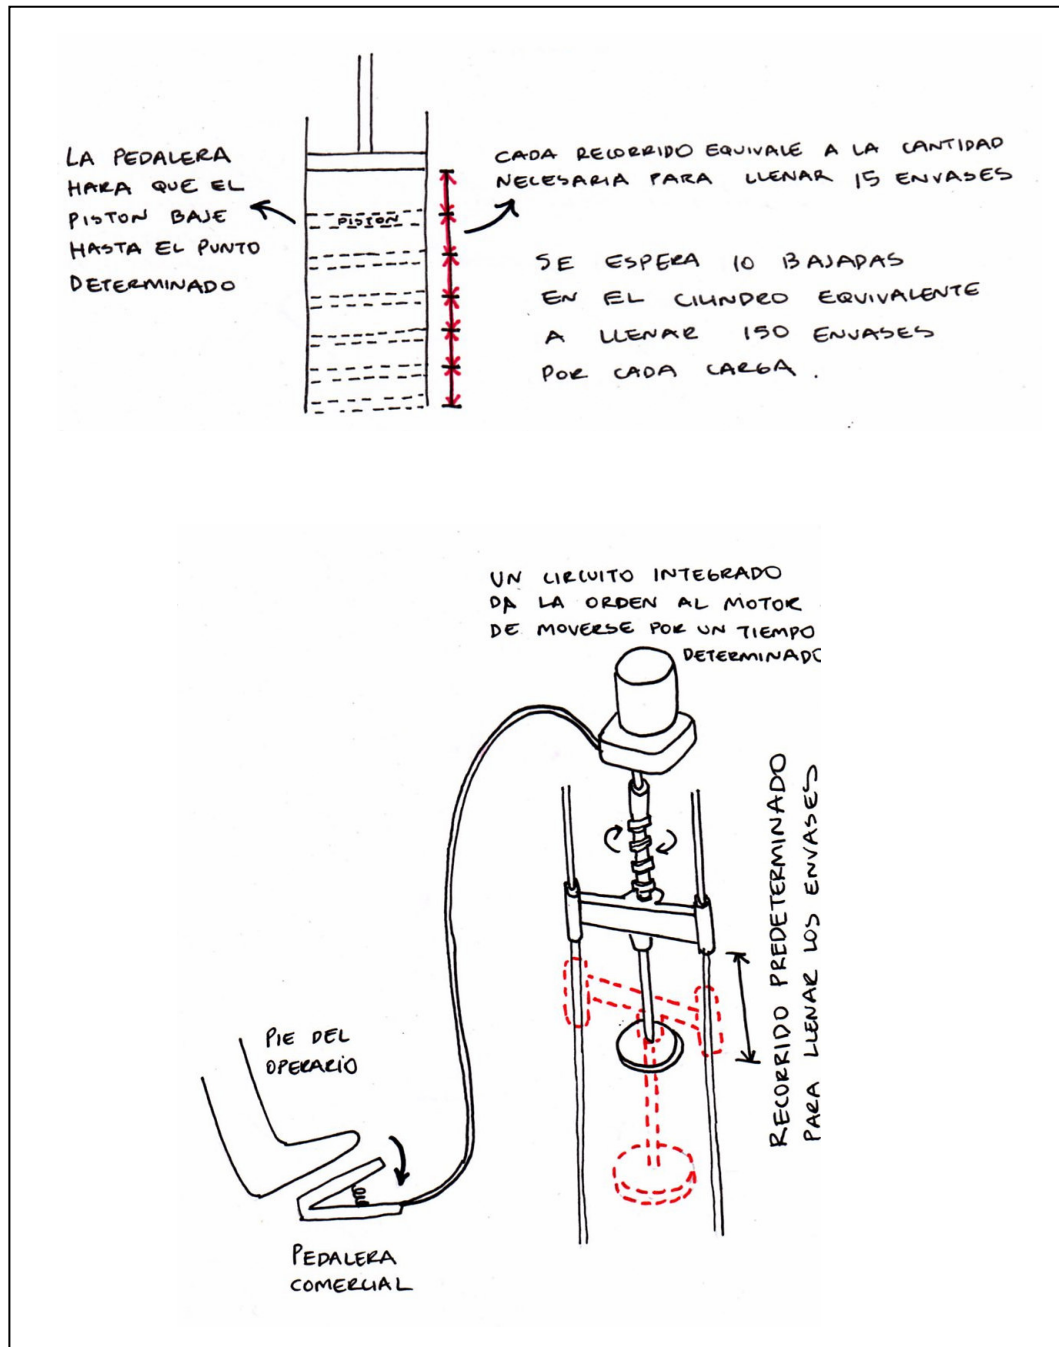 LA PEDALERA
HARA QUE EL
PISTON BAJE
HASTA EL PUNTO
DETERMINADO
PISTON
CADA RECORRIDO EQUIVALE A LA CANTIDAD
NECESARIA PARA LLENAR 15 ENVASES
SE ESPERA 10 BAJADAS
EN EL CILINDRO EQUIVALENTE
A LLENAR 150 ENVASES
POR CADA CARGA.
UN CIRCUITO INTEGRADO
DA LA ORDEN AL MOTOR
DE MOVERSE POR UN TIEMPO
DETERMINADO
RECORRIDO PREDETERMINADO
PARA LLENAR LOS ENVASES
PIE DEL
OPERARIO
PEDALERA
COMERCIAL